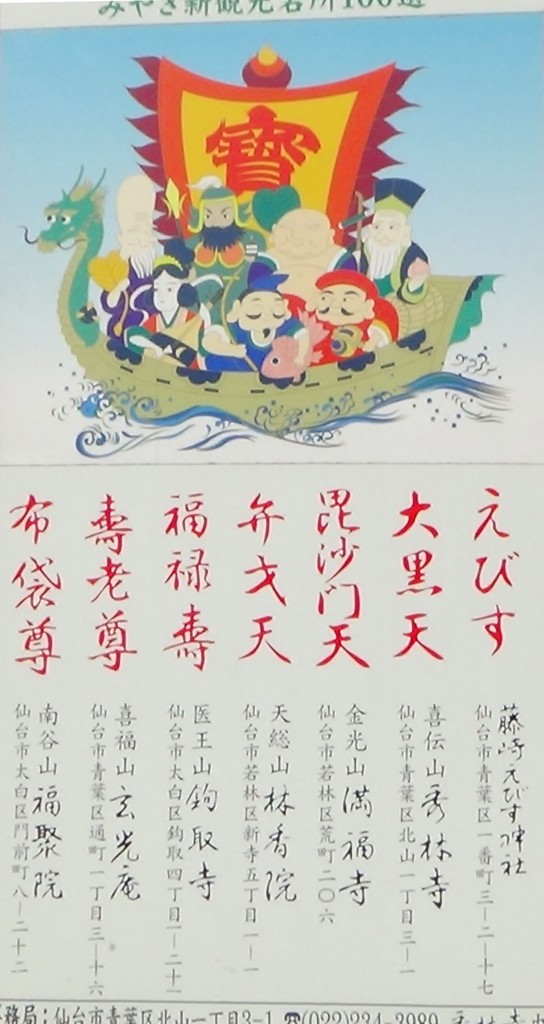 みやぎ新観光名所100選
寳
えびす
藤崎えびす神社
仙台市青葉区一番町三−二−十七
大黒天
喜伝山秀林寺
仙台市青葉区北山一丁目三−一
毘沙門天
金光山満福寺
仙台市若林区荒町二〇六
弁才天
天総山林香院
仙台市若林区新寺五丁目一−一
福禄寿
医王山鈎取寺
仙台市太白区鈎取四丁目一−二十一
寿老尊
喜福山玄光庵
仙台市青葉区通町一丁目三−十六
布袋尊
南谷山福聚院
仙台市太白区門前町八−二十二
事務局：仙台市青葉区北山一丁目3−1 ☎(022)234-3989 秀林寺内